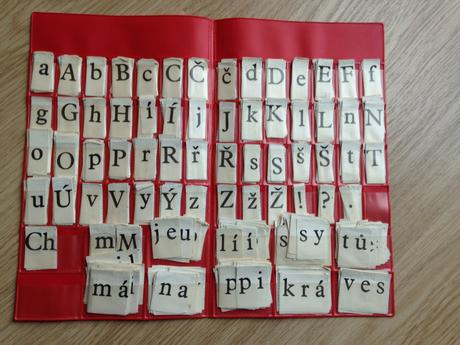 a A b B c C Č č d D e E F f
g G h H í Í j J k K l L n N
o O p P r R ř Ř s S š Š t T
u Ú v V y Ý z Z ž Ž ! ? .
Ch m M jeu líí s sy tů
má na ppi krá ves